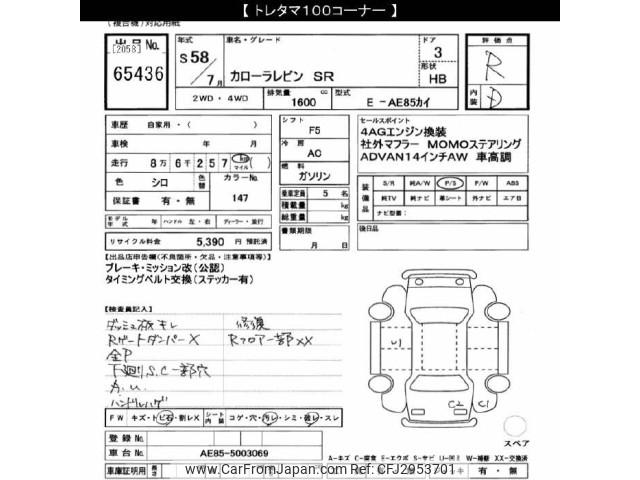 【 トレタマ100コーナー 】
(複合機)対応用紙
出品No. [2058] 65436
年式 S58/7月
車名・グレード カローラレビン SR
ドア 3
形状 HB
評価点 R
内装 D
2WD・4WD
排気量 1600 cc
型式 E-AE85カイ
車歴 自家用・( )
車検 年 月
走行 8万6千257 (km マイル)( )
色 シロ 色替 カラーNo. 147
保証書 有・無
モデル年式 年 ハンドル 左・右 ディーラー・並行
リサイクル料金 5,390 円 預託済
シフト F5
冷房 AC
燃料 ガソリン
乗車定員 5 名
積載量 kg
総重量 kg
書類期限 月 日
セールスポイント
4AGエンジン換装
社外マフラー MOMOステアリング
ADVAN14インチAW 車高調
装備品 S/R 純A/W P/S P/W ABS
純TV 純ナビ 革シート 外ナビ エアB
ナビ型番:
後日品
【出品店申告欄(不良箇所・欠品・注意事項等)】
ブレーキ・ミッション改(公認)
タイミングベルト交換(ステッカー有)
【検査員記入】
ダッシュ板キレ 修復
RゲートダンパーX Rフロアー部XX
全P
下廻りS.C一部穴
A.U.
ハンドルハゲ
U1
C2 C1
スペア
FW キズ・トビ石・割レX シート内装 コゲ・穴・汚レ・シミ・破レ・スレ
登録No.
車台No. AE85-5003069
A-キズ C-腐食 E-エクボ S-サビ U-凹ミ W-補修 XX-交換済
車庫証明用 長さ
有・無
www.CarFromJapan.com Ref:CFJ2953701